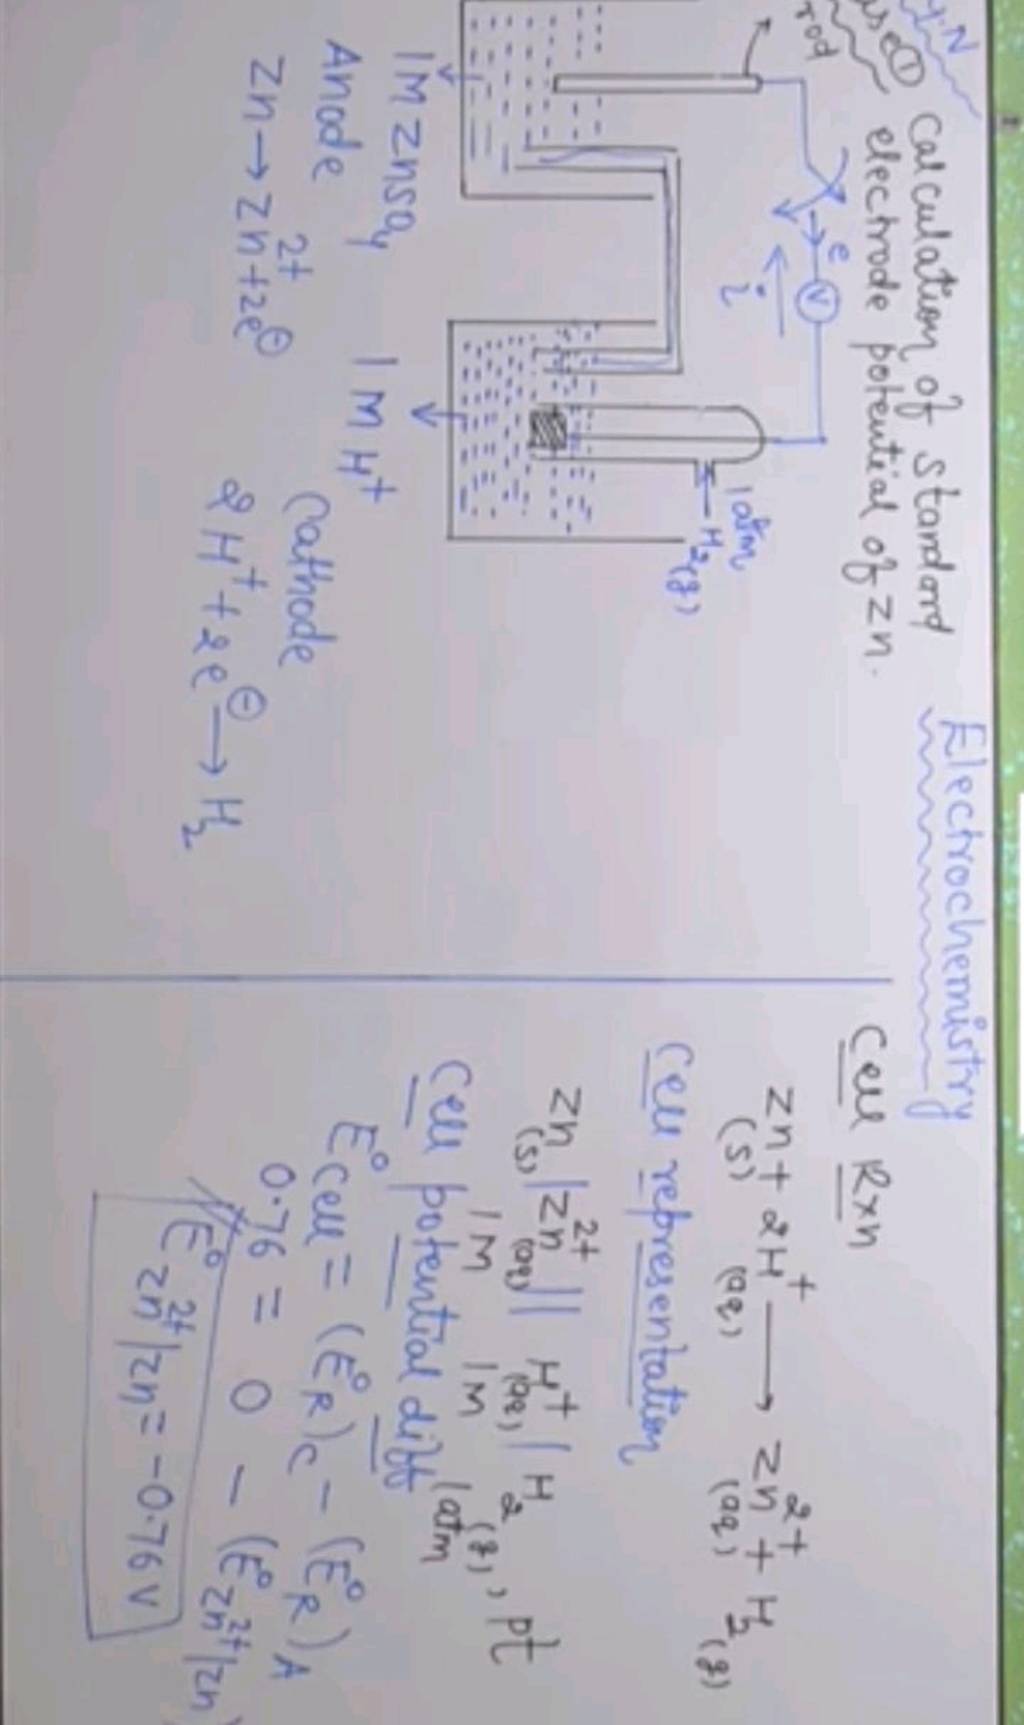 Electrochemistry
Calculation of standard
electrode potential of zn.
rod
e
V
i
1 atm
H₂(g)
1M ZnSO₄
1 M H⁺
Anode
Cathode
Zn → Zn²⁺ + 2e⊖
2H⁺ + 2e⊖ → H₂
Cell Rxn
Zn(s) + 2H⁺(aq) → Zn²⁺(aq) + H₂(g)
Cell representation
Zn(s) | Zn²⁺(aq) || H⁺(aq) | H₂(g), pt
1M 1M 1atm
Cell potential diff
E°cell = (E°R)C − (E°R)A
0.76 = 0 − (E°Zn²⁺/Zn)
E°Zn²⁺/Zn = −0.76 V